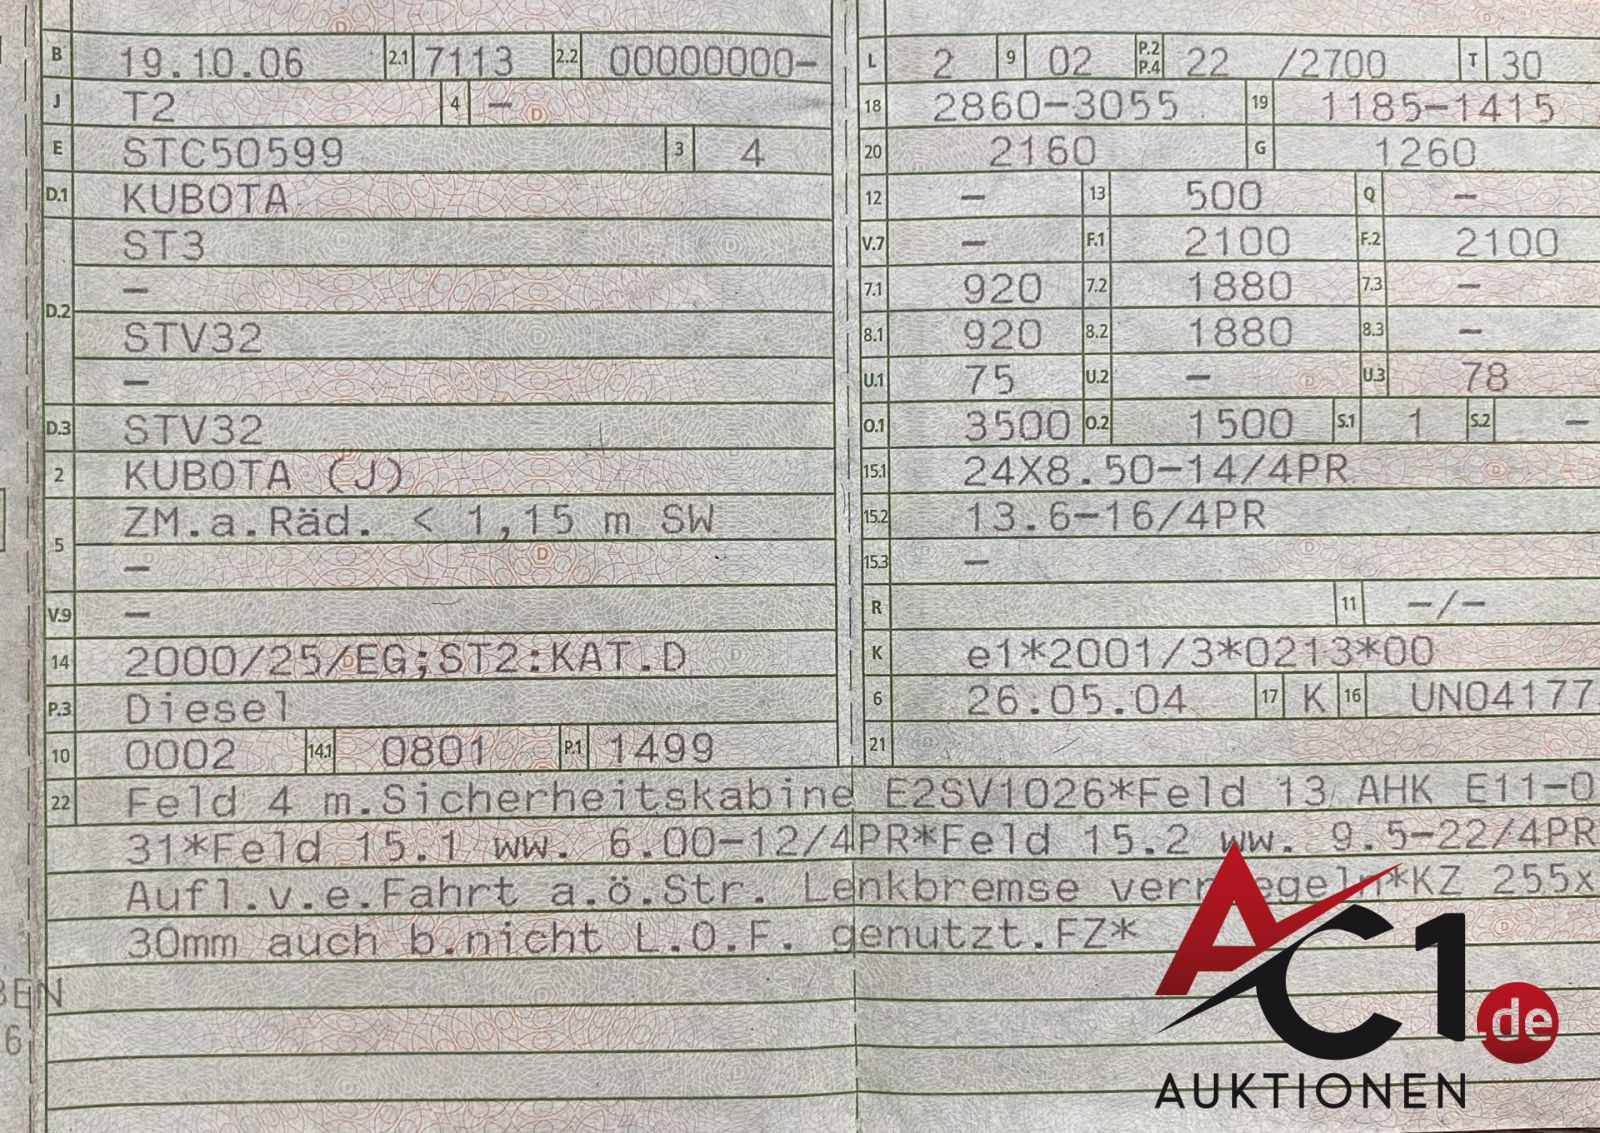 B 19.10.06 2.1 7113 2.2 00000000-
J T2 4 -
E STC50599 3 4
D.1 KUBOTA
D.2 ST3
-
STV32
-
D.3 STV32
2 KUBOTA (J)
5 ZM.a.Räd. < 1,15 m SW
-
V.9 -
14 2000/25/EG;ST2:KAT.D
P.3 Diesel
10 0002 14.1 0801 P.1 1499
L 2 9 02 P.2 P.4 22 /2700 T 30
18 2860-3055 19 1185-1415
20 2160 G 1260
12 - 13 500 Q -
V.7 - F.1 2100 F.2 2100
7.1 920 7.2 1880 7.3 -
8.1 920 8.2 1880 8.3 -
U.1 75 U.2 - U.3 78
O.1 3500 O.2 1500 S.1 1 S.2 -
15.1 24X8.50-14/4PR
15.2 13.6-16/4PR
15.3 -
R 11 -/-
K e1*2001/3*0213*00
6 26.05.04 17 K 16 UN04177
21
22 Feld 4 m.Sicherheitskabine E2SV1026*Feld 13 AHK E11-0
31*Feld 15.1 ww. 6.00-12/4PR*Feld 15.2 ww. 9.5-22/4PR
Aufl.v.e.Fahrt a.ö.Str. Lenkbremse verr egeln*KZ 255x
30mm auch b.nicht L.O.F. genutzt.FZ*
BEN
6
AC1.de
AUKTIONEN